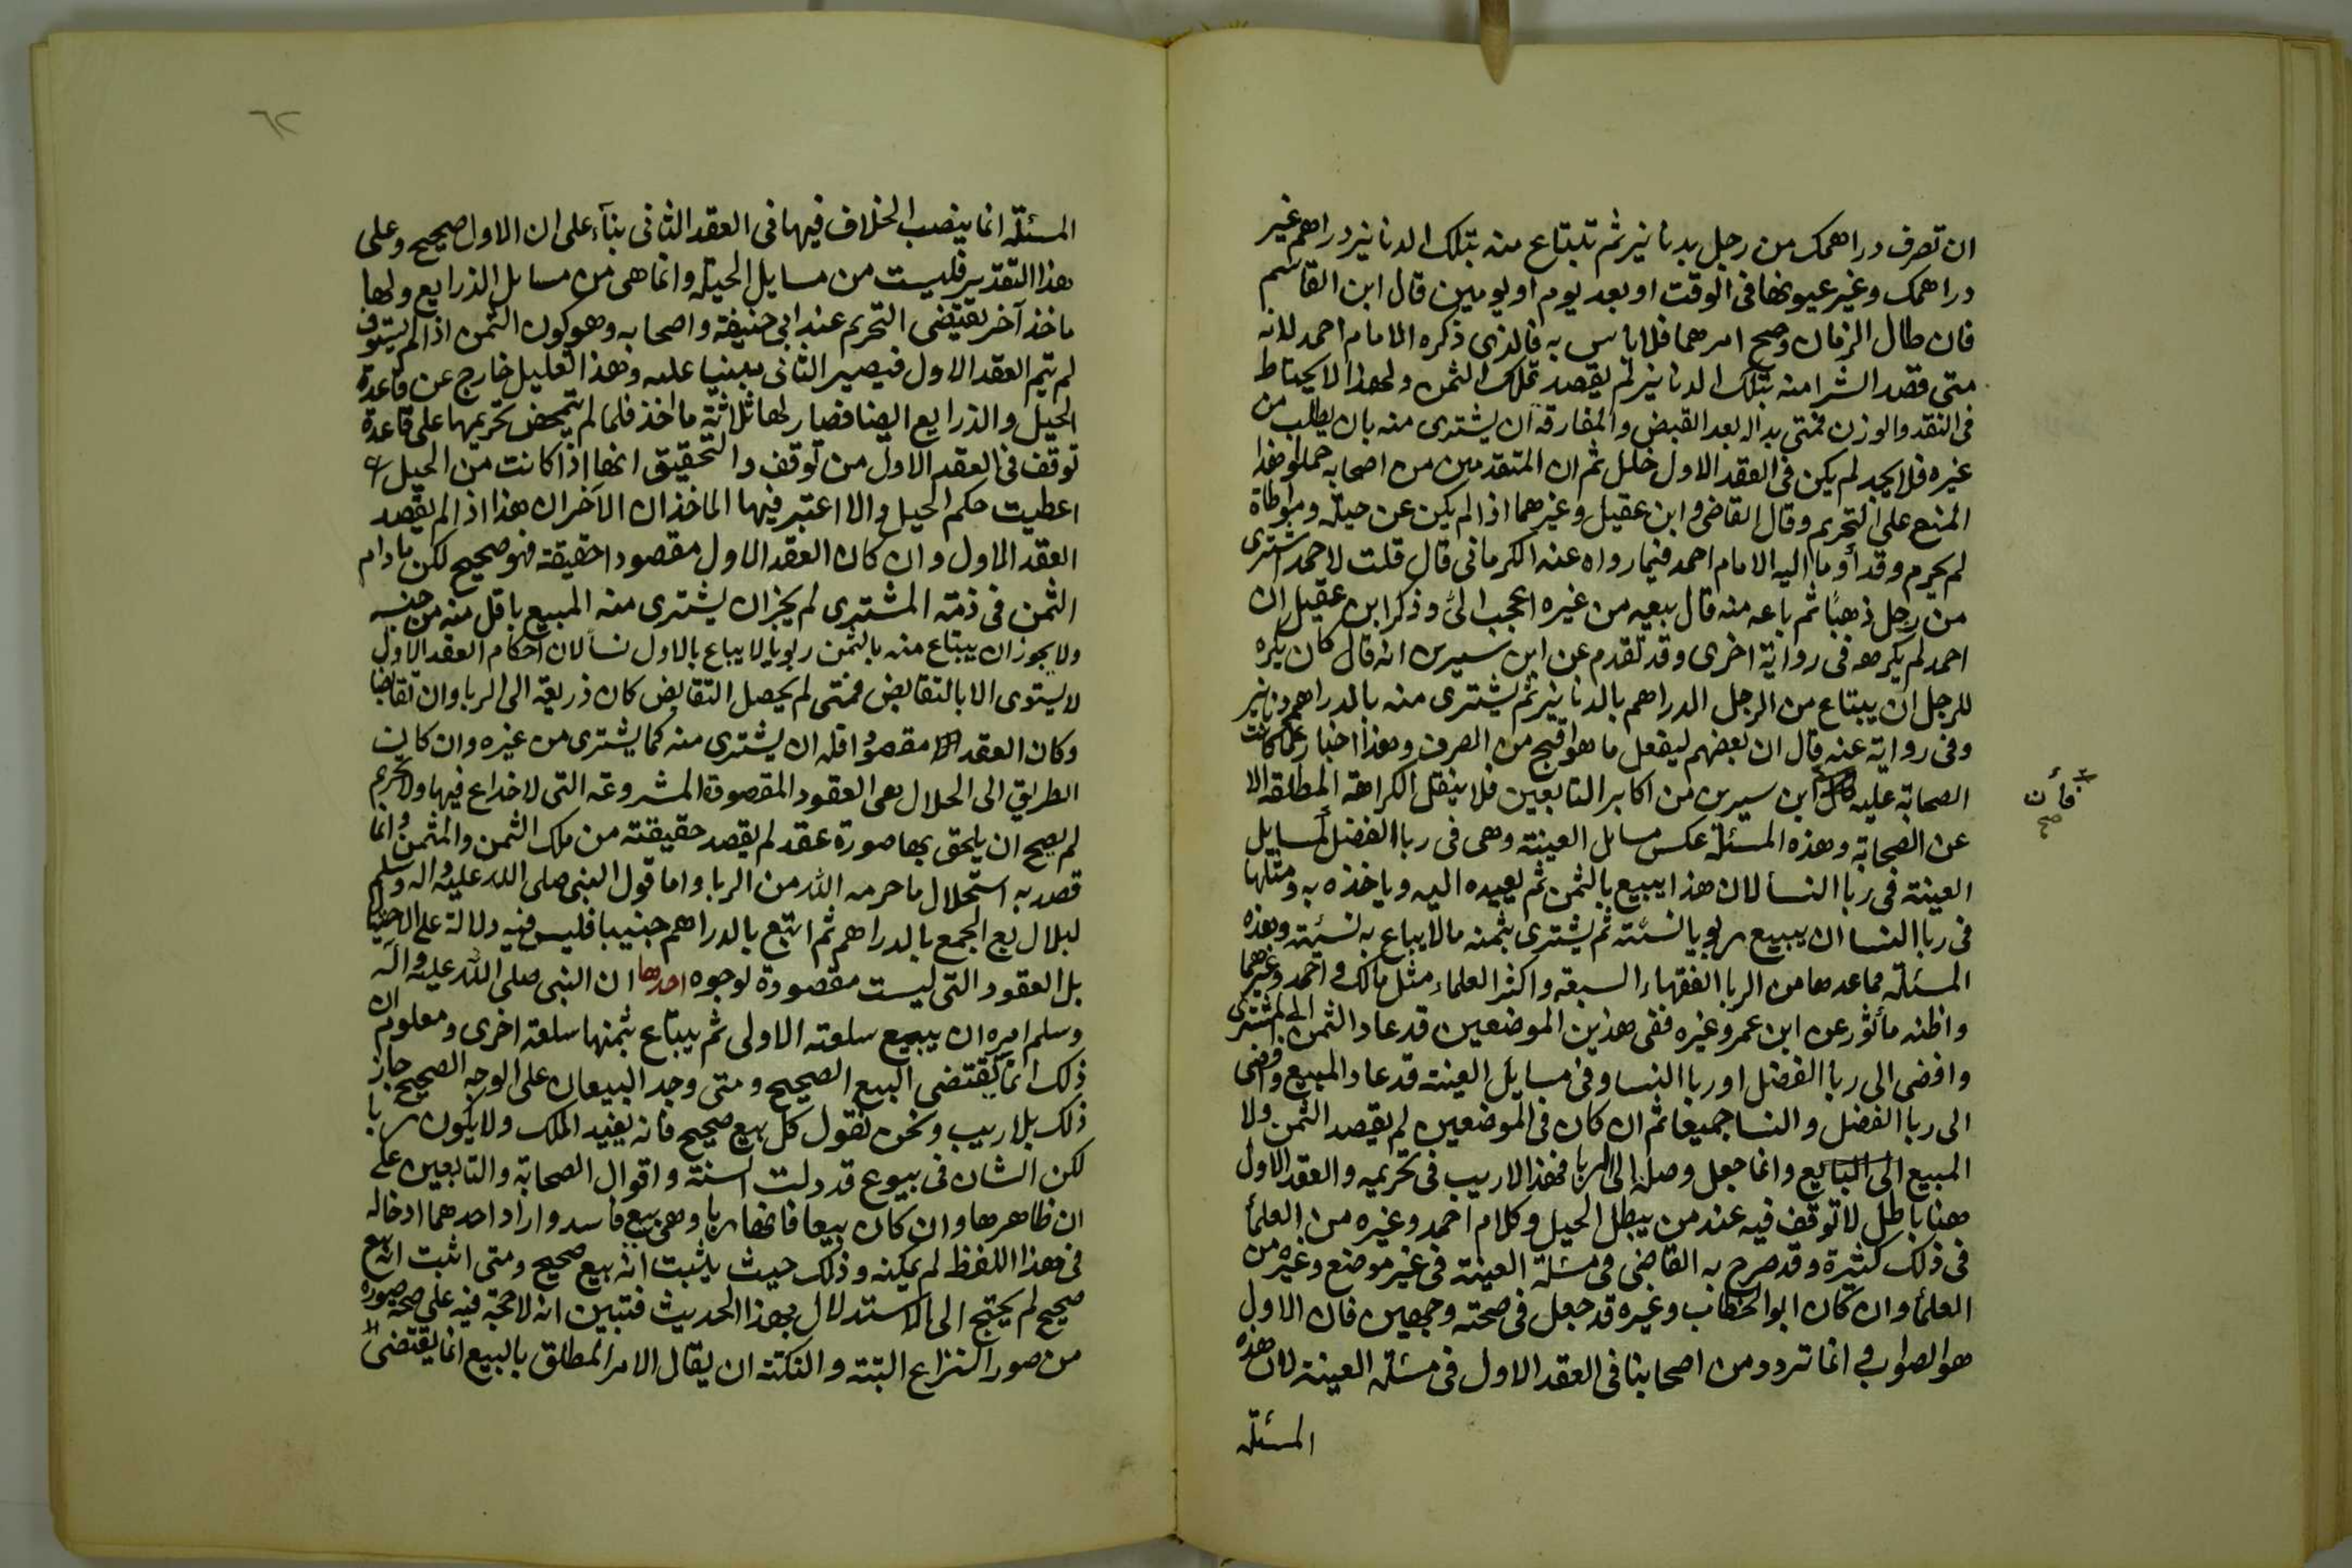 ان تصرف دراهمك من رجل بدنانير ثم تبتاع منه بتلك الدنانير دراهم غير
دراهمك وغير عيونها فى الوقت او بعد يوم او يومين قال ابن القاسم
فان طال الزمان وصح امرهما فلا باس به فالذى ذكره الامام احمد لانه
متى قصد الشرا منه بتلك الدنانير لم يقصد تملك الثمن ولهذا لا يحتاط
فى النقد والوزن فمتى بدا له بعد القبض والمفارقة ان يشترى منه بان يطلب من
غيره فلا يجد لم يكن فى العقد الاول خلل ثم ان المتقدمين من اصحابه حملوا هذا
المنع على التحريم وقال القاضى وابن عقيل وغيرهما اذا لم يكن عن حيلة ومواطاة
لم يحرم وقد أوما اليه الامام احمد فيما رواه عنه الكرمانى قال قلت لاحمد اشترى
من رجل ذهبًا ثم باعه منه قال بيعه من غيره اعجب الىّ وذكر ابن عقيل ان
احمد لم يكرهه فى رواية اخرى وقد تقدم عن ابن سيرين انه قال كان يكره
للرجل ان يبتاع من الرجل الدراهم بالدنانير ثم يشترى منه بالدراهم دنانير
وفى رواية عنه قال ان بعضهم ليفعل ما هو اقبح من الصرف وهذا اخبار عما كانت
الصحابة عليه ابن سيرين من اكابر التابعين فلا ينقل الكراهة المطلقة الا
فأن
صح
عن الصحابة وهذه المسئلة عكس مسايل العينة وهى فى ربا الفضل لمسايل
العينة فى ربا النسا لان هذا يبيع بالثمن ثم يعيده اليه وياخذه به ومثلها
فى ربا النسا ان يبيع ربويا نسئة ثم يشترى بثمنه مالا يباع به نسئة وهذه
المسئلة مما عدها من الربا الفقهاء السبعة واكثر العلماء مثل مالك واحمد وغيرهما
واظنه مأثور عن ابن عمر وغيره ففى هذين الموضعين قد عاد الثمن الى المشترى
وافضى الى ربا الفضل او ربا النسا وفى مسايل العينة قد عاد المبيع وافضى
الى ربا الفضل والنسا جميعا ثم ان كان فى الموضعين لم يقصد الثمن ولا
المبيع الى البايع وانما جعل وصلة الى الربا فهذا لا ريب فى تحريمه والعقد الاول
هنا باطل لا توقف فيه عند من يبطل الحيل وكلام احمد وغيره من العلمأ
فى ذلك كثيرة وقد صرح به القاضى فى مسئلة العينة فى غير موضع وغيره من
العلمأ وان كان ابو الخطاب وغيره قد جعل فى صحته وجهين فان الاول
هو الصواب وانما تردد من اصحابنا فى العقد الاول فى مسئلة العينة لان هذه
المسئلة
٦٢
المسئلة انما ينصب الخلاف فيها فى العقد الثانى بنآء على ان الاول صحيح وعلى
هذا التقدير فليست من مسايل الحيلة وانما هى من مسايل الذرايع ولها
ماخذ آخر يقتضى التحريم عند ابى حنيفة واصحابه وهو كون الثمن اذا لم يستوف
لم يتم العقد الاول فيصير الثانى مبنيا عليه وهذا التعليل خارج عن قاعدة
الحيل والذرايع ايضا فصار لها ثلاثة ماخذ فلما لم يتمحض تحريمها على قاعدة
توقف فى العقد الاول من توقف والتحقيق انها اذا كانت من الحيل
اعطيت حكم الحيل والا اعتبر فيها الماخذان الآخران هذا اذا لم يقصد
العقد الاول وان كان العقد الاول مقصودا حقيقة فهو صحيح لكن ما دام
الثمن فى ذمة المشترى لم يجز ان يشترى منه المبيع باقل منه من جنسه
ولا يجوز ان يبتاع منه بالثمن ربويا لا يباع بالاول نسأ لان احكام العقد الاول
لا يستوى الا بالتقابض فمتى لم يحصل التقابض كان ذريعة الى الربا وان تقابضا
وكان العقد مقصودًا فله ان يشترى منه كما يشترى من غيره وان كانت
الطريق الى الحلال هى العقود المقصودة المشروعة التى لا خداع فيها ولا تحريم
لم يصح ان يلحق بها صورة عقد لم يقصد حقيقته من ملك الثمن والمثمن وانما
قصد به استحلال ما حرمه الله من الربا واما قول النبى صلى الله عليه واله وسلم
لبلال بع الجمع بالدراهم ثم ابتع بالدراهم جنيبا فليس فيه دلالة على الاحتيال
بل العقود التى ليست مقصودة لوجوه احدها ان النبى صلى الله عليه وآله
وسلم امره ان يبيع سلعته الاولى ثم يبتاع بثمنها سلعة اخرى ومعلوم ان
ذلك انما يقتضى البيع الصحيح ومتى وجد البيعان على الوجه الصحيح جاز
ذلك بلا ريب ونحن نقول كل بيع صحيح فانه يفيد الملك ولا يكون ربا
لكن الشان فى بيوع قد دلت السنة واقوال الصحابة والتابعين على
ان ظاهرها وان كان بيعا فانها ربا وهى بيع فاسد واراد احدهما ادخاله
فى هذا اللفظ لم يمكنه وذلك حيث يثبت انه بيع صحيح ومتى اثبت انه بيع
صحيح لم يحتج الى الاستدلال بهذا الحديث فتبين انه لا حجة فيه على صحة صورة
من صور النزاع البتة والنكتة ان يقال الامر المطلق بالبيع انما يقتضى